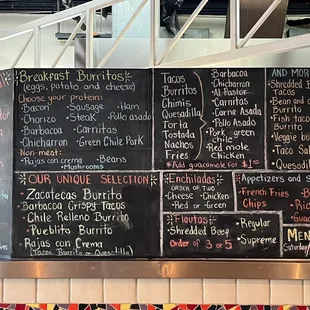 Breakfast Burritos
(eggs, potato and cheese)
Choose your protein:
• Bacon • Sausage • Ham
• Chorizo • Steak • Pollo asado
• Barbacoa • Carnitas
• Chicharron • Green Chile Pork
Non-meat:
• Rajas con crema • Beans
• Mushrooms
OUR UNIQUE SELECTION
Zacatecas Burrito
Barbacoa Crispy Tacos
Chile Relleno Burrito
Pueblito Burrito
Rajas con Crema
(Tacos, Burrito or Quesadilla)
Tacos
Burritos
Chimis
Quesadilla
Torta
Tostada
Nachos
Fries
• Barbacoa
• Chicharron
• Al-Pastor
• Carnitas
• Carne Asada
• Pollo Asado
• Pork green chile
• Red mole Chicken
Add guacamole for $1
Enchiladas
ORDER OF TWO
• Cheese • Chicken
• Red or • Green
Flautas
• Shredded Beef
Order of 3 or 5
• Regular
• Supreme
AND MORE
Shredded
Tacos
Bean and
Burrito
Fish taco
Burrito
Veggie bu
Taco Sala
Quesadil
Appetizers and S
French Fries
Chips